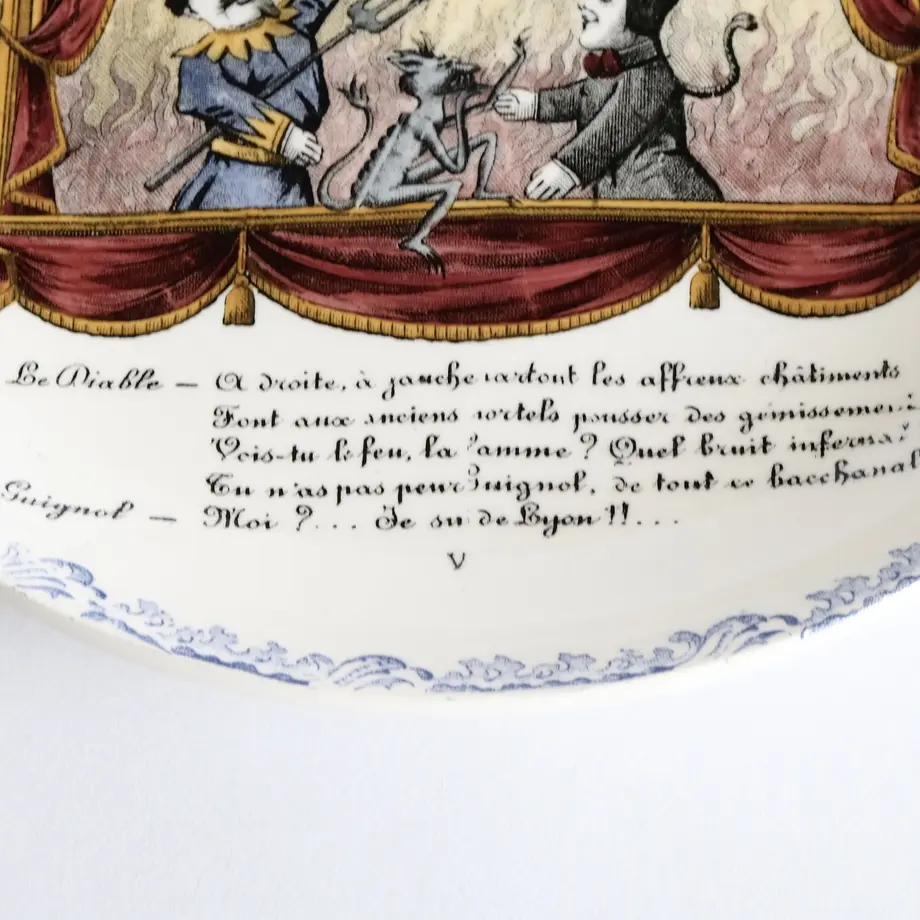 Le Diable — A droite, à gauche partout les affreux châtiments
Font aux anciens mortels pousser des gémissemen
Vois-tu le feu, la flamme ? Quel bruit infernal
Tu n'as pas peur Guignol, de tout ce bacchanal
Guignol — Moi ?... Je su de Lyon !!...
V